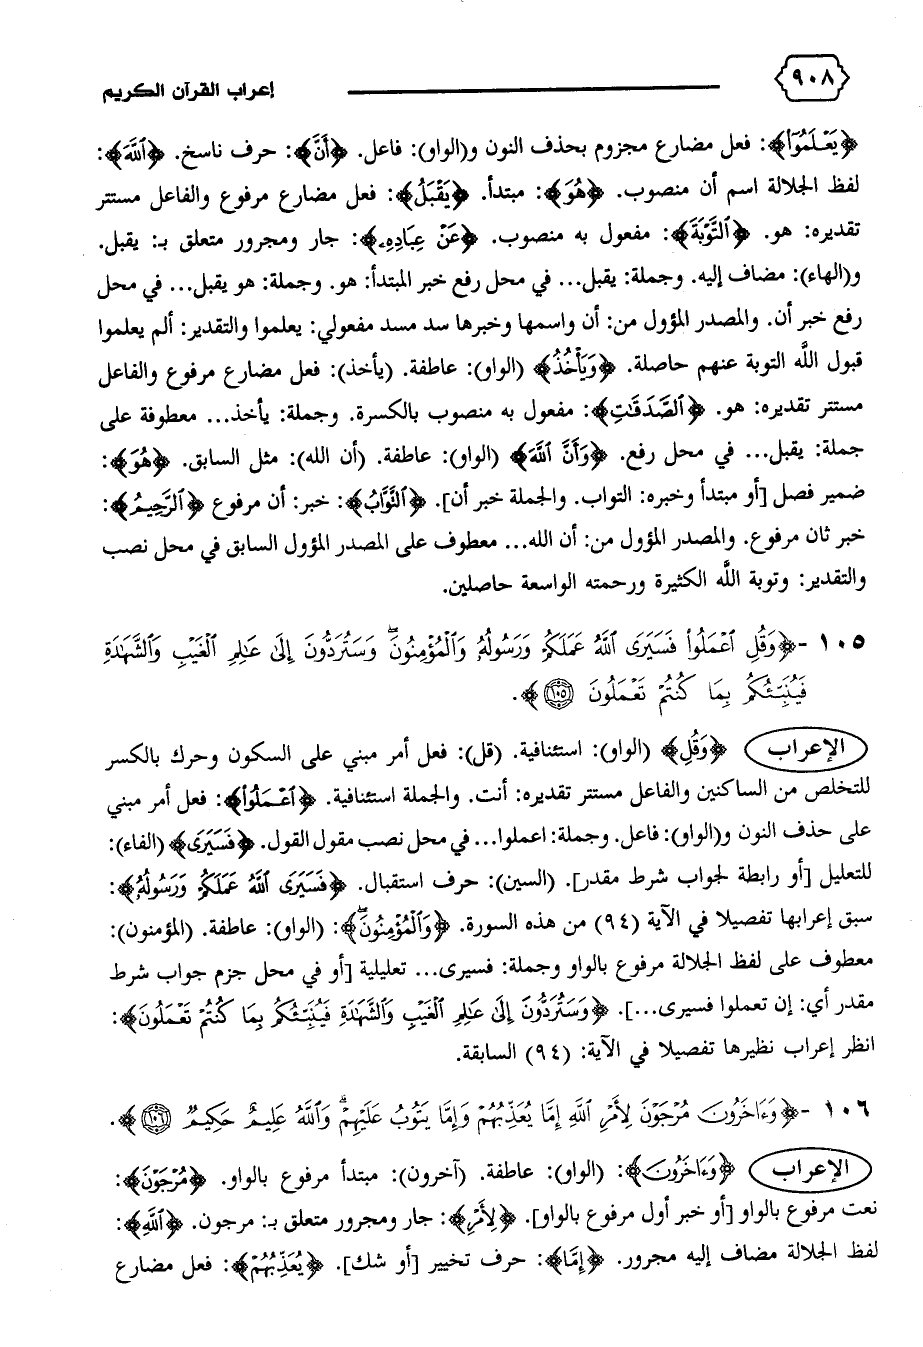 ٩٠٨ إعراب القرآن الكريم
﴿يَعْلَمُوٓا۟﴾: فعل مضارع مجزوم بحذف النون و(الواو): فاعل. ﴿أَنَّ﴾: حرف ناسخ. ﴿ٱللَّهَ﴾:
لفظ الجلالة اسم أن منصوب. ﴿هُوَ﴾: مبتدأ. ﴿يَقْبَلُ﴾: فعل مضارع مرفوع والفاعل مستتر
تقديره: هو. ﴿ٱلتَّوْبَةَ﴾: مفعول به منصوب. ﴿عَنْ عِبَادِهِۦ﴾: جار ومجرور متعلق بـ: يقبل.
و(الهاء): مضاف إليه. وجملة: يقبل... في محل رفع خبر المبتدأ: هو. وجملة: هو يقبل... في محل
رفع خبر أن. والمصدر المؤول من: أن واسمها وخبرها سد مسد مفعولي: يعلموا والتقدير: ألم يعلموا
قبول اللَّه التوبة عنهم حاصلة. ﴿وَيَأْخُذُ﴾ (الواو): عاطفة. (يأخذ): فعل مضارع مرفوع والفاعل
مستتر تقديره: هو. ﴿ٱلصَّدَقَٰتِ﴾: مفعول به منصوب بالكسرة. وجملة: يأخذ... معطوفة على
جملة: يقبل... في محل رفع. ﴿وَأَنَّ ٱللَّهَ﴾ (الواو): عاطفة. (أن الله): مثل السابق. ﴿هُوَ﴾:
ضمير فصل [أو مبتدأ وخبره: التواب. والجملة خبر أن]. ﴿ٱلتَّوَّابُ﴾: خبر: أن مرفوع ﴿ٱلرَّحِيمُ﴾:
خبر ثان مرفوع. والمصدر المؤول من: أن الله... معطوف على المصدر المؤول السابق في محل نصب
والتقدير: وتوبة اللَّه الكثيرة ورحمته الواسعة حاصلين.
١٠٥ -﴿وَقُلِ ٱعْمَلُوا۟ فَسَيَرَى ٱللَّهُ عَمَلَكُمْ وَرَسُولُهُۥ وَٱلْمُؤْمِنُونَ ۖ وَسَتُرَدُّونَ إِلَىٰ عَٰلِمِ ٱلْغَيْبِ وَٱلشَّهَٰدَةِ
فَيُنَبِّئُكُم بِمَا كُنتُمْ تَعْمَلُونَ ١٠٥﴾.
الإعراب ﴿وَقُلِ﴾ (الواو): استئنافية. (قل): فعل أمر مبني على السكون وحرك بالكسر
للتخلص من الساكنين والفاعل مستتر تقديره: أنت. والجملة استئنافية. ﴿ٱعْمَلُوا۟﴾: فعل أمر مبني
على حذف النون و(الواو): فاعل. وجملة: اعملوا... في محل نصب مقول القول. ﴿فَسَيَرَى﴾ (الفاء):
للتعليل [أو رابطة لجواب شرط مقدر]. (السين): حرف استقبال. ﴿فَسَيَرَى ٱللَّهُ عَمَلَكُمْ وَرَسُولُهُۥ﴾:
سبق إعرابها تفصيلا في الآية (٩٤) من هذه السورة. ﴿وَٱلْمُؤْمِنُونَ ۖ﴾: (الواو): عاطفة. (المؤمنون):
معطوف على لفظ الجلالة مرفوع بالواو وجملة: فسيرى... تعليلية [أو في محل جزم جواب شرط
مقدر أي: إن تعملوا فسيرى...]. ﴿وَسَتُرَدُّونَ إِلَىٰ عَٰلِمِ ٱلْغَيْبِ وَٱلشَّهَٰدَةِ فَيُنَبِّئُكُم بِمَا كُنتُمْ تَعْمَلُونَ﴾:
انظر إعراب نظيرها تفصيلا في الآية: (٩٤) السابقة.
١٠٦ -﴿وَءَاخَرُونَ مُرْجَوْنَ لِأَمْرِ ٱللَّهِ إِمَّا يُعَذِّبُهُمْ وَإِمَّا يَتُوبُ عَلَيْهِمْ ۗ وَٱللَّهُ عَلِيمٌ حَكِيمٌ ١٠٦﴾.
الإعراب ﴿وَءَاخَرُونَ﴾: (الواو): عاطفة. (آخرون): مبتدأ مرفوع بالواو. ﴿مُرْجَوْنَ﴾:
نعت مرفوع بالواو [أو خبر أول مرفوع بالواو]. ﴿لِأَمْرِ﴾: جار ومجرور متعلق بـ: مرجون. ﴿ٱللَّهِ﴾:
لفظ الجلالة مضاف إليه مجرور. ﴿إِمَّا﴾: حرف تخيير [أو شك]. ﴿يُعَذِّبُهُمْ﴾: فعل مضارع